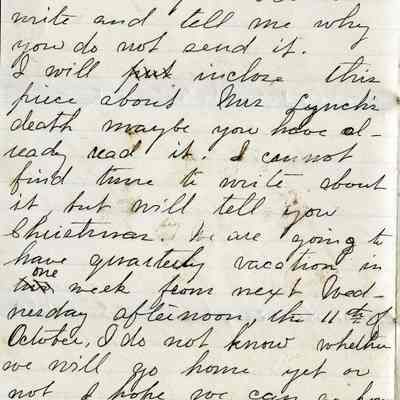 write and tell me why
you do not send it.
I will put inclose this
piece about Mrs Lynch's
death maybe you have al-
ready read it. I cannot
find time to write about
it but will tell you
Christmas. We are going to
have quarterly vacation in
one week from next Wed-
nesday afternoon, the 11th of
October, I do not know whether
we will go home yet or
not I hope we can